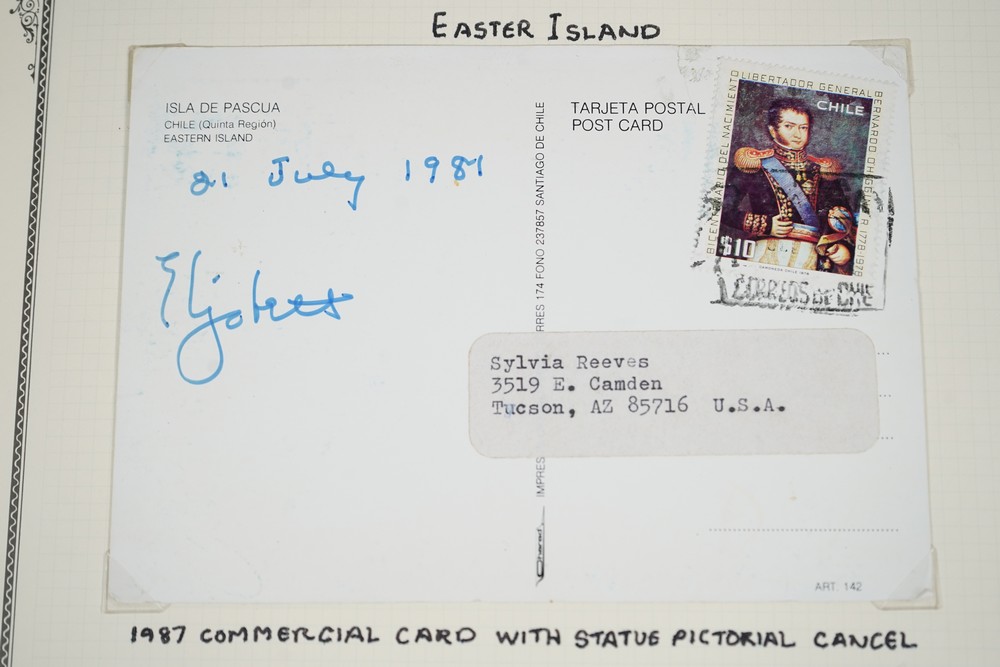 EASTER ISLAND
ISLA DE PASCUA
CHILE (Quinta Región)
EASTERN ISLAND
21 July 1981
TARJETA POSTAL
POST CARD
BICENTENARIO DEL NACIMIENTO LIBERTADOR GENERAL BERNARDO O'HIGGINS R. 1778-1978
CHILE
$10
CORREOS DE CHILE
RRES 174 FONO 237857 SANTIAGO DE CHILE
IMPRES
Sylvia Reeves
3519 E. Camden
Tucson, AZ 85716 U.S.A.
ART. 142
1987 COMMERCIAL CARD WITH STATUE PICTORIAL CANCEL